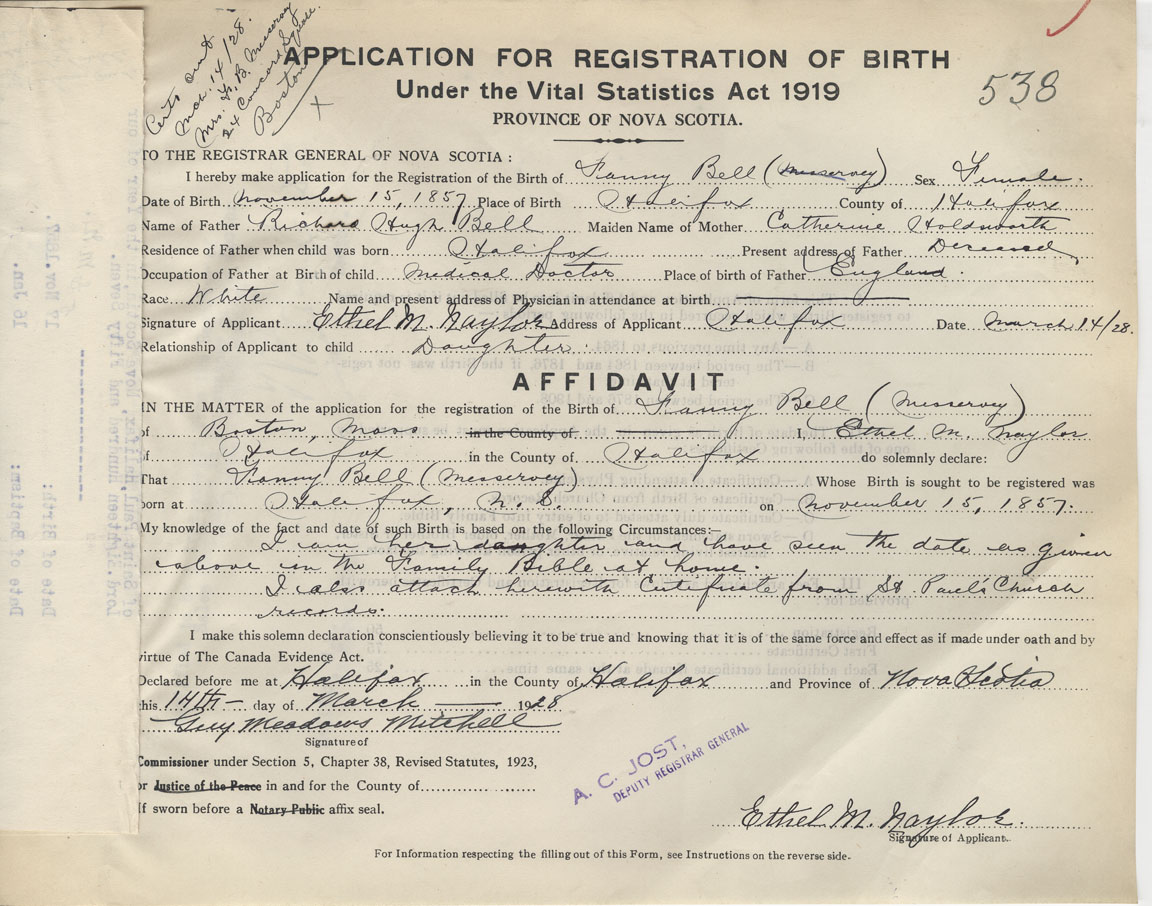 Certs sent
Mch. 14/28.
Mrs. H. B. Messervy
24 Concord Square.
Boston
X
APPLICATION FOR REGISTRATION OF BIRTH
Under the Vital Statistics Act 1919
538
PROVINCE OF NOVA SCOTIA.
TO THE REGISTRAR GENERAL OF NOVA SCOTIA :
I hereby make application for the Registration of the Birth of Fanny Bell (Messervey) Sex Female.
Date of Birth November 15, 1857 Place of Birth Halifax County of Halifax
Name of Father Richard Hugh Bell Maiden Name of Mother Catherine Holdsworth
Residence of Father when child was born Halifax Present address of Father Deceased
Occupation of Father at Birth of child Medical Doctor Place of birth of Father England.
Race White Name and present address of Physician in attendance at birth
Signature of Applicant Ethel M. Naylor Address of Applicant Halifax Date March 14/28.
Relationship of Applicant to child Daughter.
AFFIDAVIT
IN THE MATTER of the application for the registration of the Birth of Fanny Bell (Messervey)
of Boston, Mass in the County of I, Ethel M. Naylor
of Halifax in the County of Halifax do solemnly declare:
That Fanny Bell (Messervey) Whose Birth is sought to be registered was
born at Halifax, N.S. on November 15, 1857.
My knowledge of the fact and date of such Birth is based on the following Circumstances:—
I am her daughter and have seen the date as given
above in the Family Bible at home.
I also attach herewith Certificate from St Paul's Church
records.
I make this solemn declaration conscientiously believing it to be true and knowing that it is of the same force and effect as if made under oath and by
virtue of The Canada Evidence Act.
Declared before me at Halifax in the County of Halifax and Province of Nova Scotia
this 14th day of March 1928
Guy Meadows Mitchell
Signature of
Commissioner under Section 5, Chapter 38, Revised Statutes, 1923,
or Justice of the Peace in and for the County of
If sworn before a Notary Public affix seal.
A. C. JOST,
DEPUTY REGISTRAR GENERAL
Ethel M. Naylor.
Signature of Applicant.
For Information respecting the filling out of this Form, see Instructions on the reverse side.